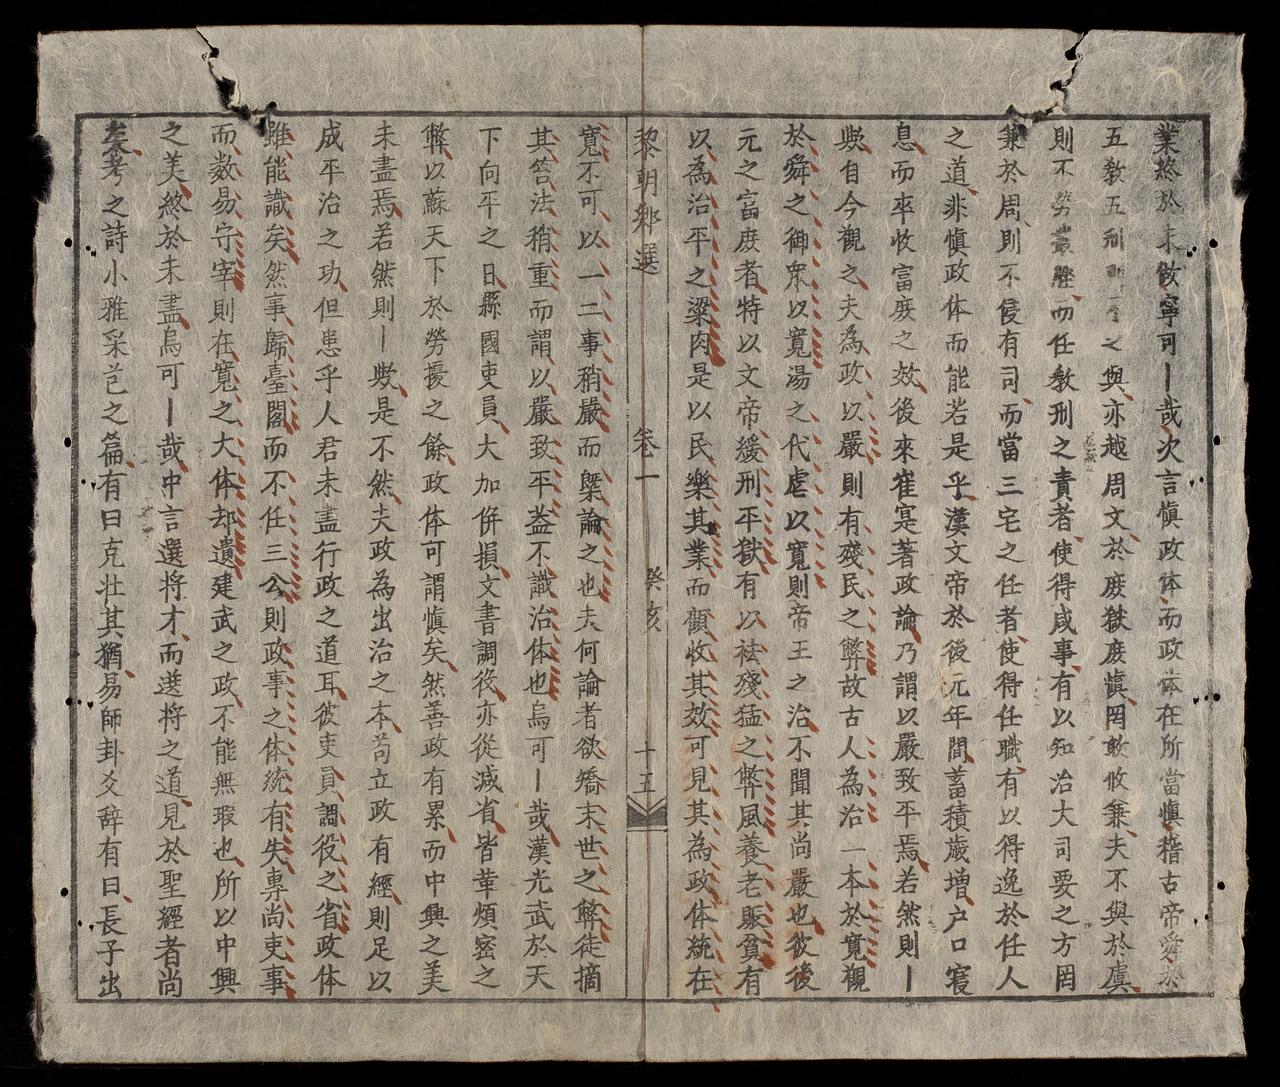 業終於未做寧可丨哉次言慎政体而政体在所當慎稽古帝舜於
五敎五刑之與亦越周文於庶獄庶慎罔敢攸兼夫不與於虞
則不勞叢脞而任敎刑之責者使得咸事有以知治大司要之方罔
兼於周則不侵有司而當三宅之任者使得任職有以得逸於任人
之道非慎政体而能若是乎漢文帝於後元年間蓄積歲增户口寖
息而卒收富庶之效後來崔寔著政論乃謂以嚴致平焉若然則丨
欤自今觀之夫為政以嚴則有殘民之弊故古人為治一本於寬觀
於舜之御衆以寬湯之代虐以寬則帝王之治不聞其尚嚴也彼後
元之富庶者特以文帝緩刑平獄有以祛殘猛之弊風養老賑貧有
以為治平之粱肉是以民樂其業而顧收其效可見其為政体統在
黎朝鄉選 卷一 癸亥 十五
寬不可以一二事稍嚴而槩論之也夫何論者欲矯末世之弊徒摘
其笞法稍重而謂以嚴致平盖不識治体也烏可丨哉漢光武於天
下向平之日縣國吏員大加併損文書調役亦從減省皆革煩密之
弊以蘇天下於勞擾之餘政体可謂慎矣然善政有累而中興之美
未盡焉若然則丨欤是不然夫政為出治之本苟立政有經則足以
成平治之功但患乎人君未盡行政之道耳彼吏員調役之省政体
雖能識矣然事歸臺閣而不任三公則政事之体統有失專尚吏事
而数易守宰則在寬之大体却遺建武之政不能無瑕也所以中興
之美終於未盡烏可丨哉中言選將才而選將之道見於聖經者尚
矣考之詩小雅采芑之篇有曰克壮其猶易師卦爻辞有曰長子出